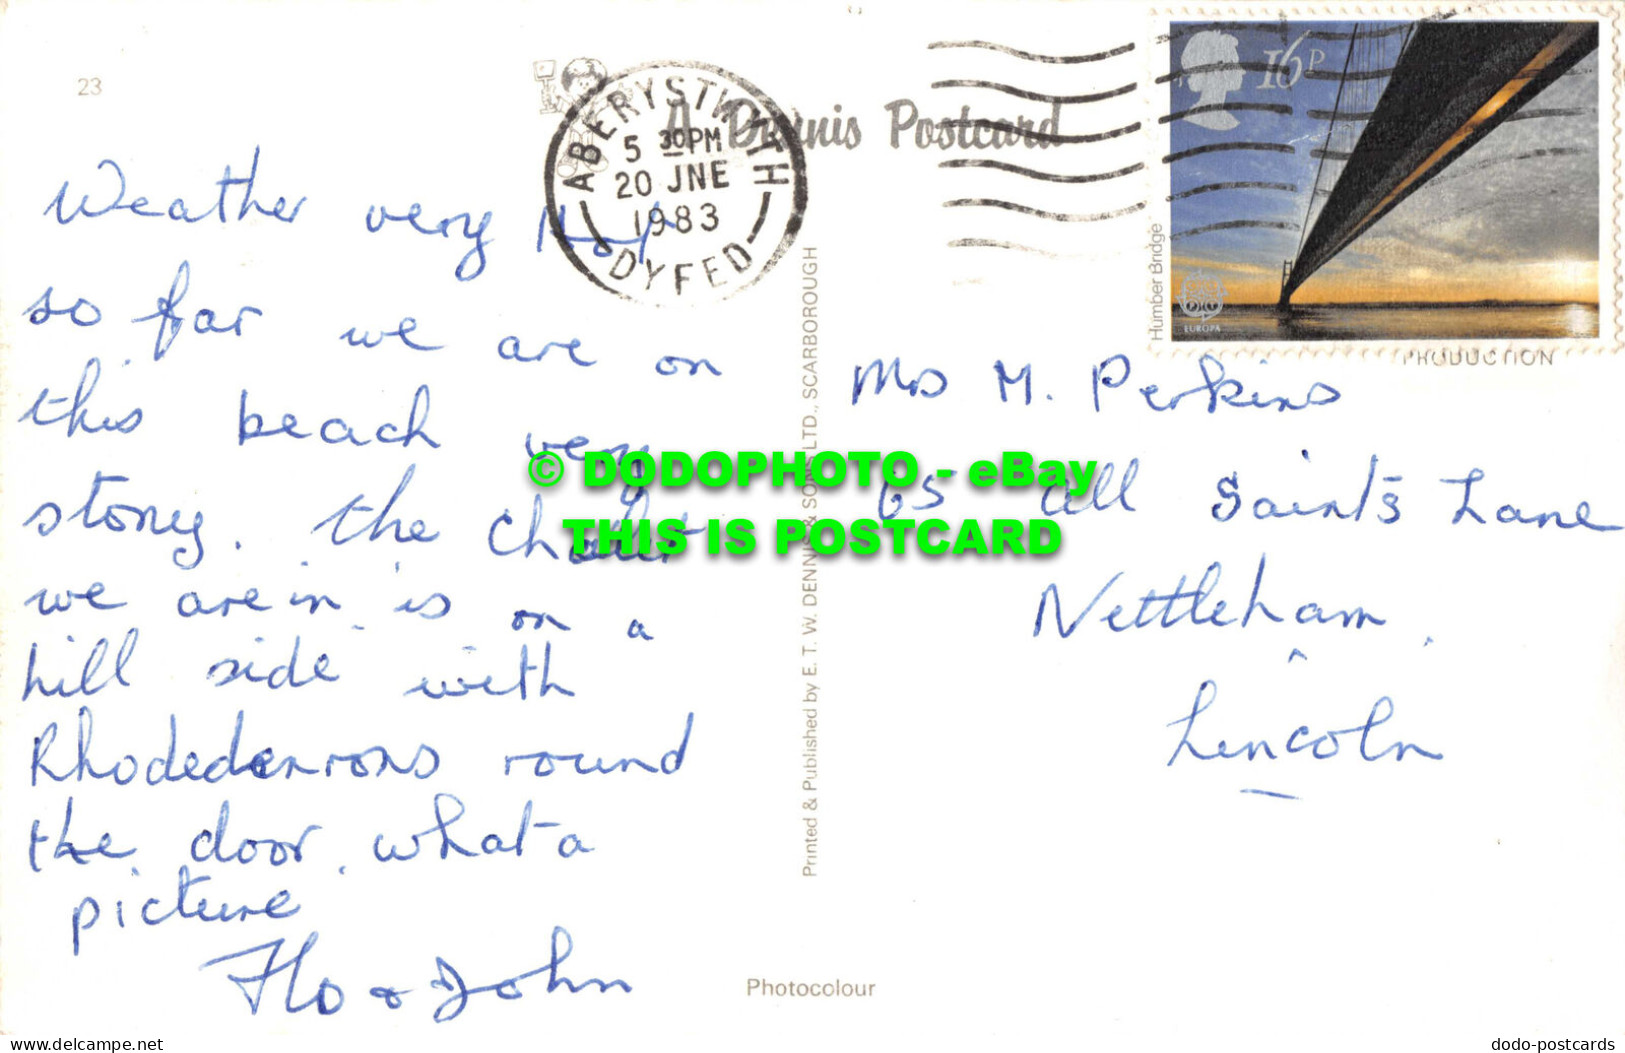 23
A Dennis Postcard
ABERYSTWYTH
5 30PM
20 JNE
1983
DYFED
16P
Humber Bridge
EUROPA
PRODUCTION
Weather very Hot
so far we are on
this beach very
stony. the chalet
we are in is on a
hill side with
Rhodedenrons round
the door. what a
picture
Flo & John
Printed & Published by E. T. W. DENNIS & SONS LTD., SCARBOROUGH
Mrs M. Perkins
65 All Saint's Lane
Nettleham.
Lincoln
Photocolour
© DODOPHOTO - eBay
THIS IS POSTCARD
delcampe.net
dodo-postcards